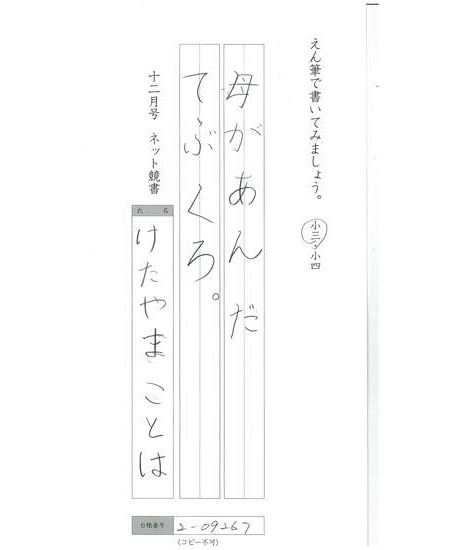 えん筆で書いてみましょう。 小三・小四
母があんだ
てぶくろ。
十二月号 ネット競書
氏 名
けたやまことは
台帳番号
2-09267
(コピー不可)